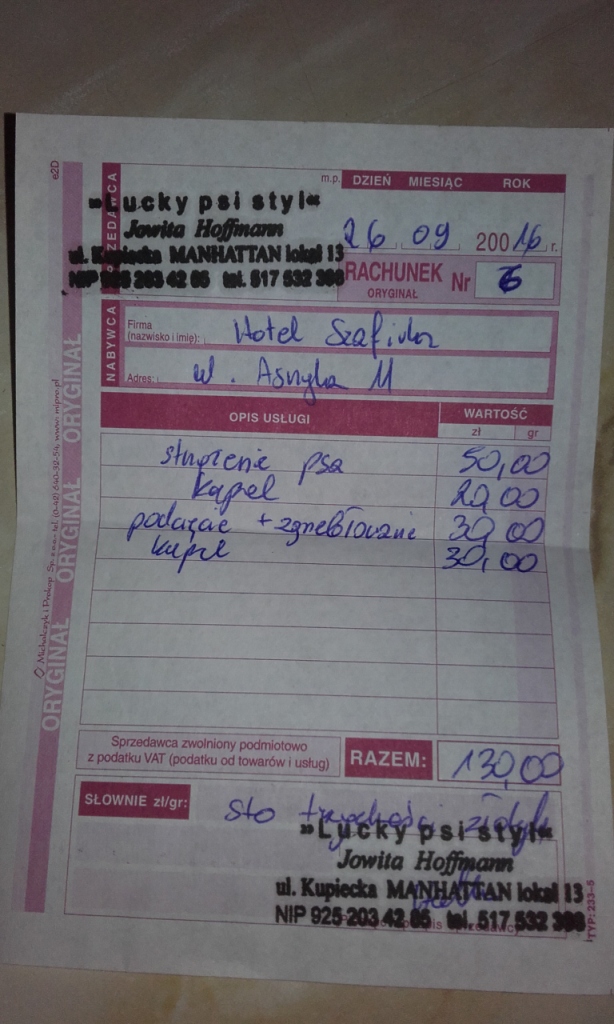 m.p. DZIEŃ MIESIĄC ROK
»Lucky psi styl«
Jowita Hoffmann
ul. Kupiecka MANHATTAN lokal 13
NIP 925 203 42 85 tel. 517 532
SPRZEDAWCA
26 09 2016 r.
RACHUNEK Nr 6
ORYGINAŁ
NABYWCA
Firma (nazwisko i imię): Hotel
Adres: ul. Asnyka 11
OPIS USŁUGI WARTOŚĆ
zł gr
strzyżenie psa 50,00
kąpiel 20,00
30,00
kąpiel 30,00
Sprzedawca zwolniony podmiotowo
z podatku VAT (podatku od towarów i usług)
RAZEM: 130,00
SŁOWNIE zł/gr: sto trzydzieści złotych
»Lucky psi styl«
Jowita Hoffmann
ul. Kupiecka MANHATTAN lokal 13
NIP 925 203 42 85 tel. 517 532
TYP: 233-5
ORYGINAŁ ORYGINAŁ ORYGINAŁ
www.mipro.pl
e2D